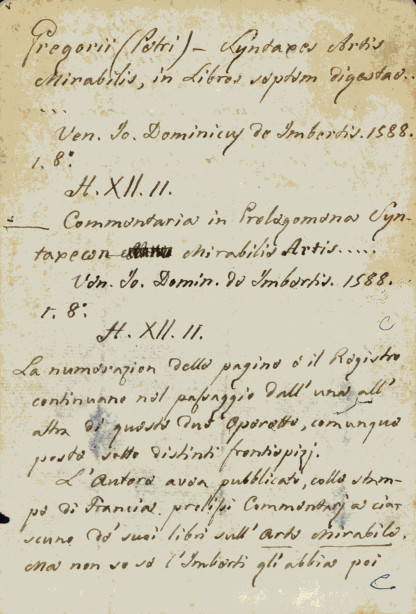 Gregorii (Petri) - Syntaxes Artis
Mirabilis, in Libros septem digestae..
...
Ven. Io. Dominicus de Imbertis. 1588.
1. 8:
H. XII. 11.
Commentaria in Prolegomena Syn-
taxeon Mirabilis Artis.....
Ven. Io. Domin. de Imbertis. 1588.
1. 8:
H. XII. 11.
La numerazion delle pagine e il Registro
continuano nel passaggio dall' una all'
altra di queste due Operette, comunque
poste sotto distinti frontispizj.
L'Autore avea pubblicati, colle stam-
pe di Francia, prolissi Commentarj a cias-
cuno de' suoi libri sull' arte mirabile.
Ma non so se l'Imberti gli abbia poi